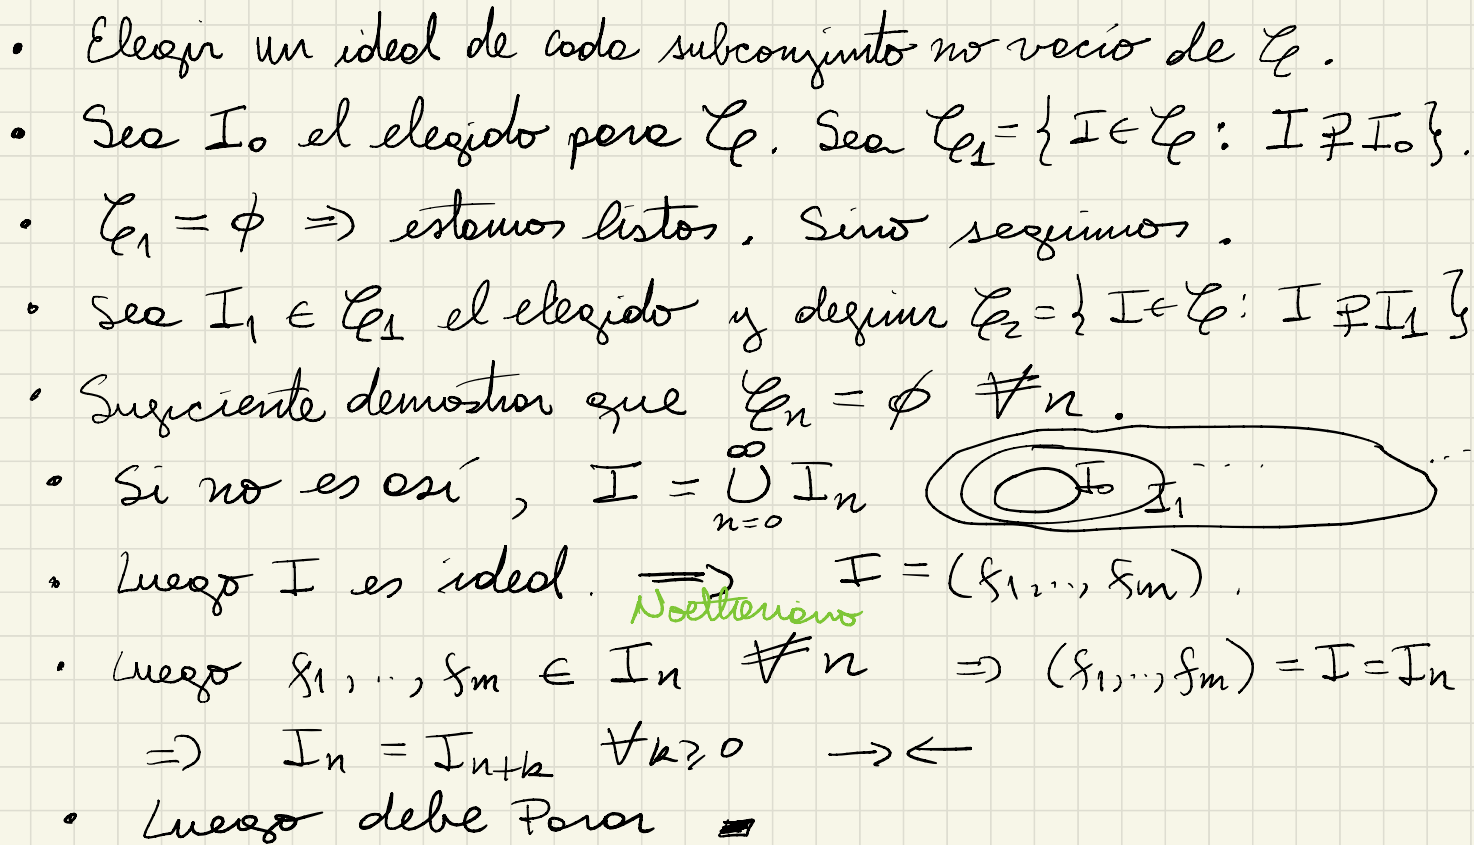 • Elegir un ideal de cada subconjunto no vacío de 𝒞.
• Sea I₀ el elegido para 𝒞. Sea 𝒞₁ = { I ∈ 𝒞 : I ⊋ I₀ }.
• 𝒞₁ = ∅ ⇒ estamos listos. Sino seguimos.
• Sea I₁ ∈ 𝒞₁ el elegido y definir 𝒞₂ = { I ∈ 𝒞 : I ⊋ I₁ }
• Suficiente demostrar que 𝒞ₙ = ∅ ∀n.
• Si no es así, I = ∞ ∪ n=0 Iₙ I₀ I₁ ....
• Luego I es ideal. ⇒ I = (f₁,..., fₘ).
Noetheriano
• Luego f₁,..., fₘ ∈ Iₙ ∀ n ⇒ (f₁,..., fₘ) = I = Iₙ
⇒ Iₙ = Iₙ₊ₖ ∀k ≥ 0 →←
• Luego debe Parar ▬